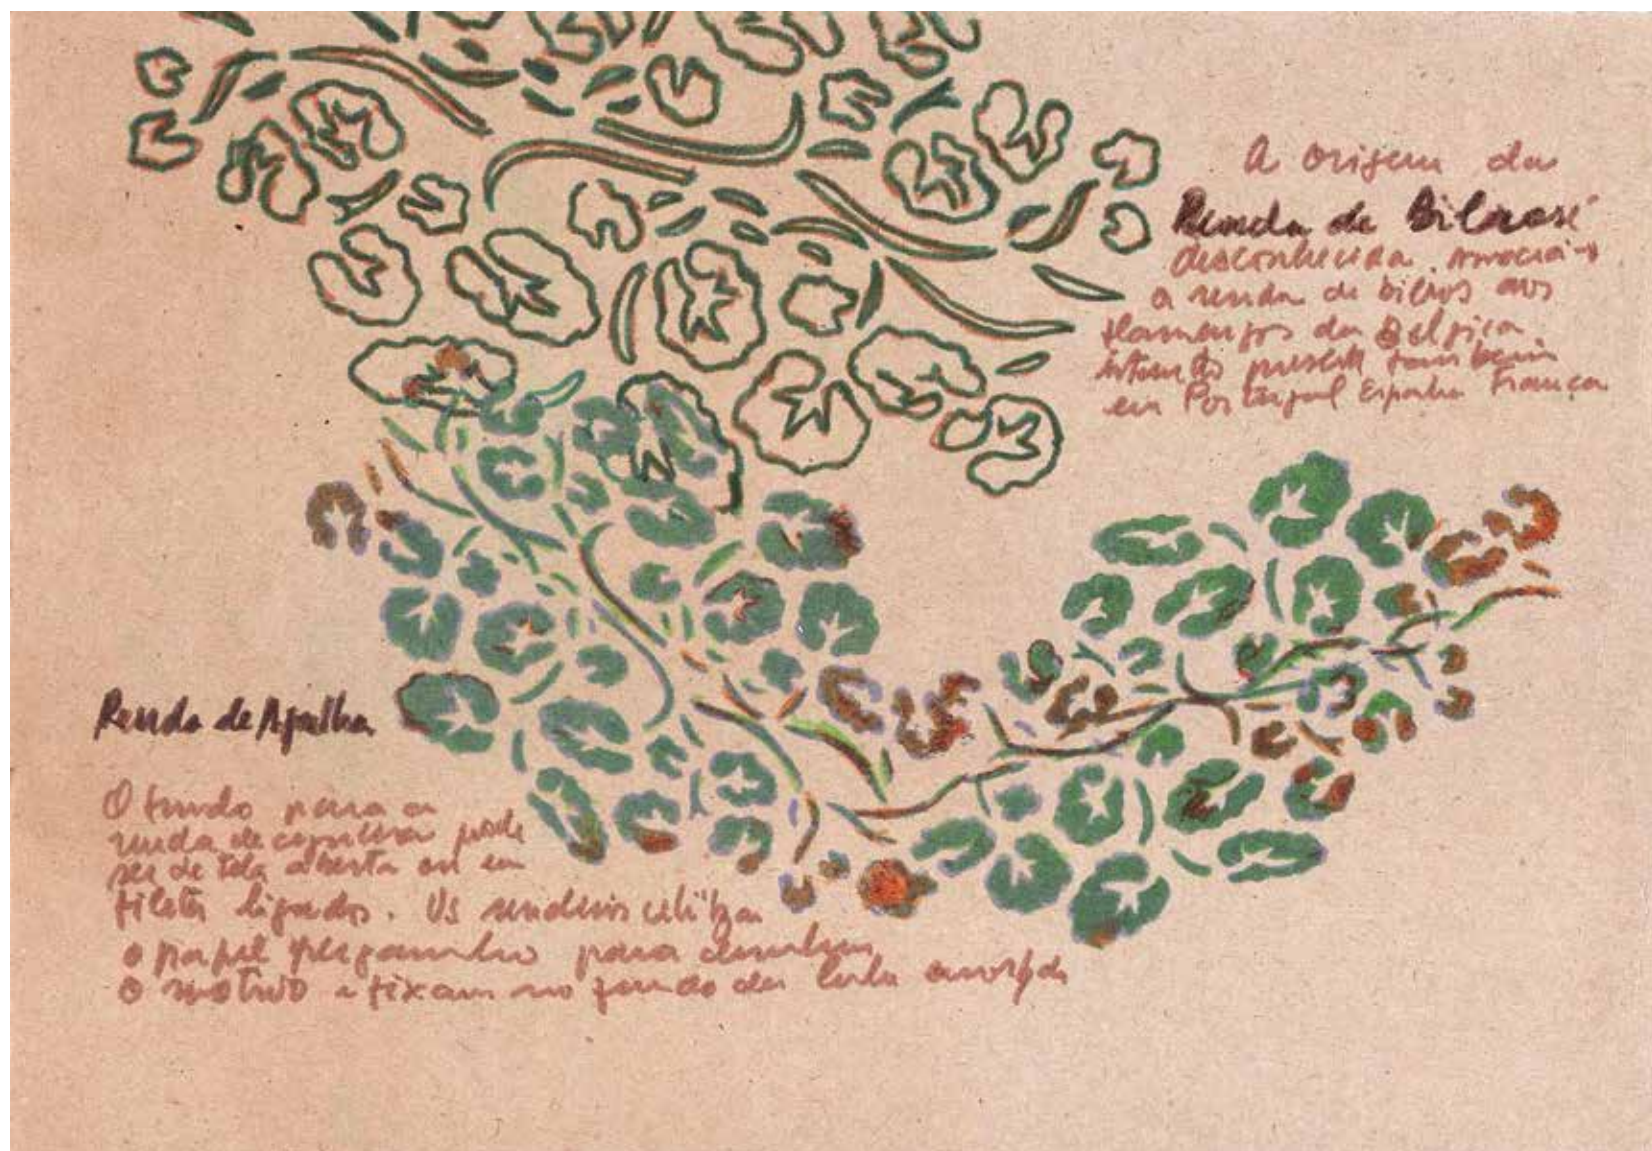 A origem da
Renda de Bilros é
desconhecida. Associa-
a renda de bilros aos
flamengos da Belgica
presente tambem
em Portugal Espanha França
Renda de Agulha
O fundo para a
renda de pode
ser de tela aberta ou em
filetes ligados. Os
o papel pergaminho para
o motivo e fixam no fundo da